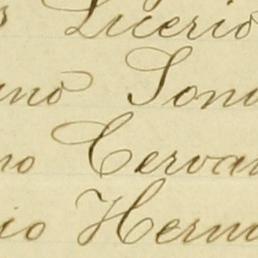 s Licerio
ano Sono
no Cervan
io Hern